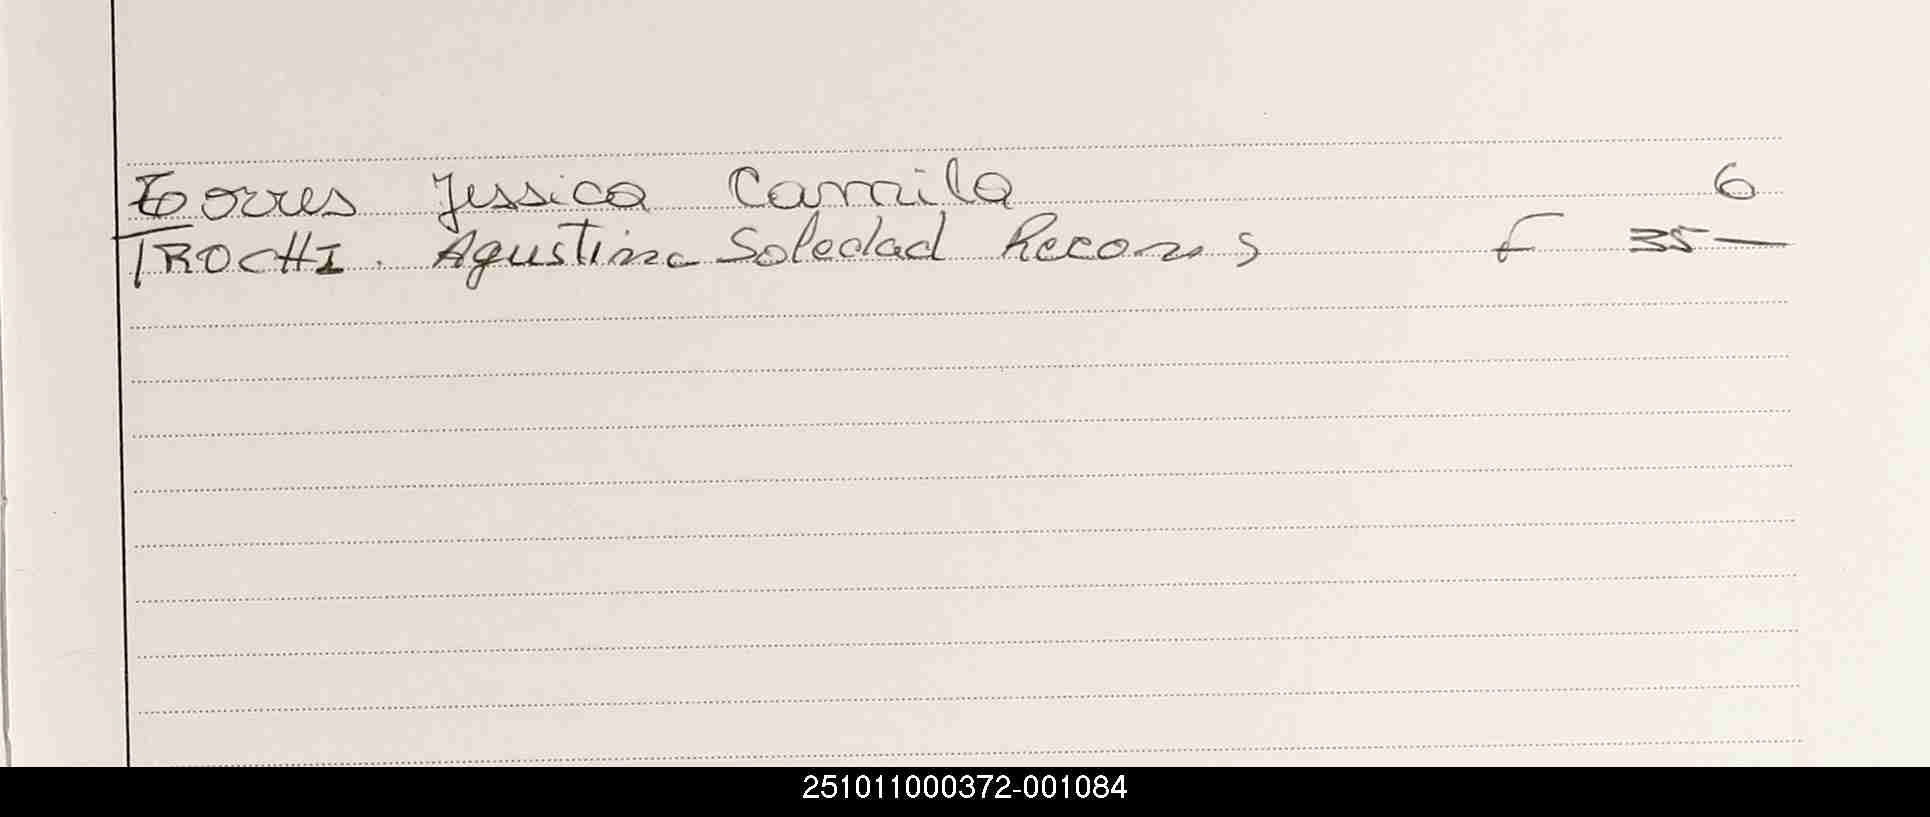 Torres Jessica Camila 6
TROCHI. Agustina Soledad Recons F 35 —
251011000372-001084